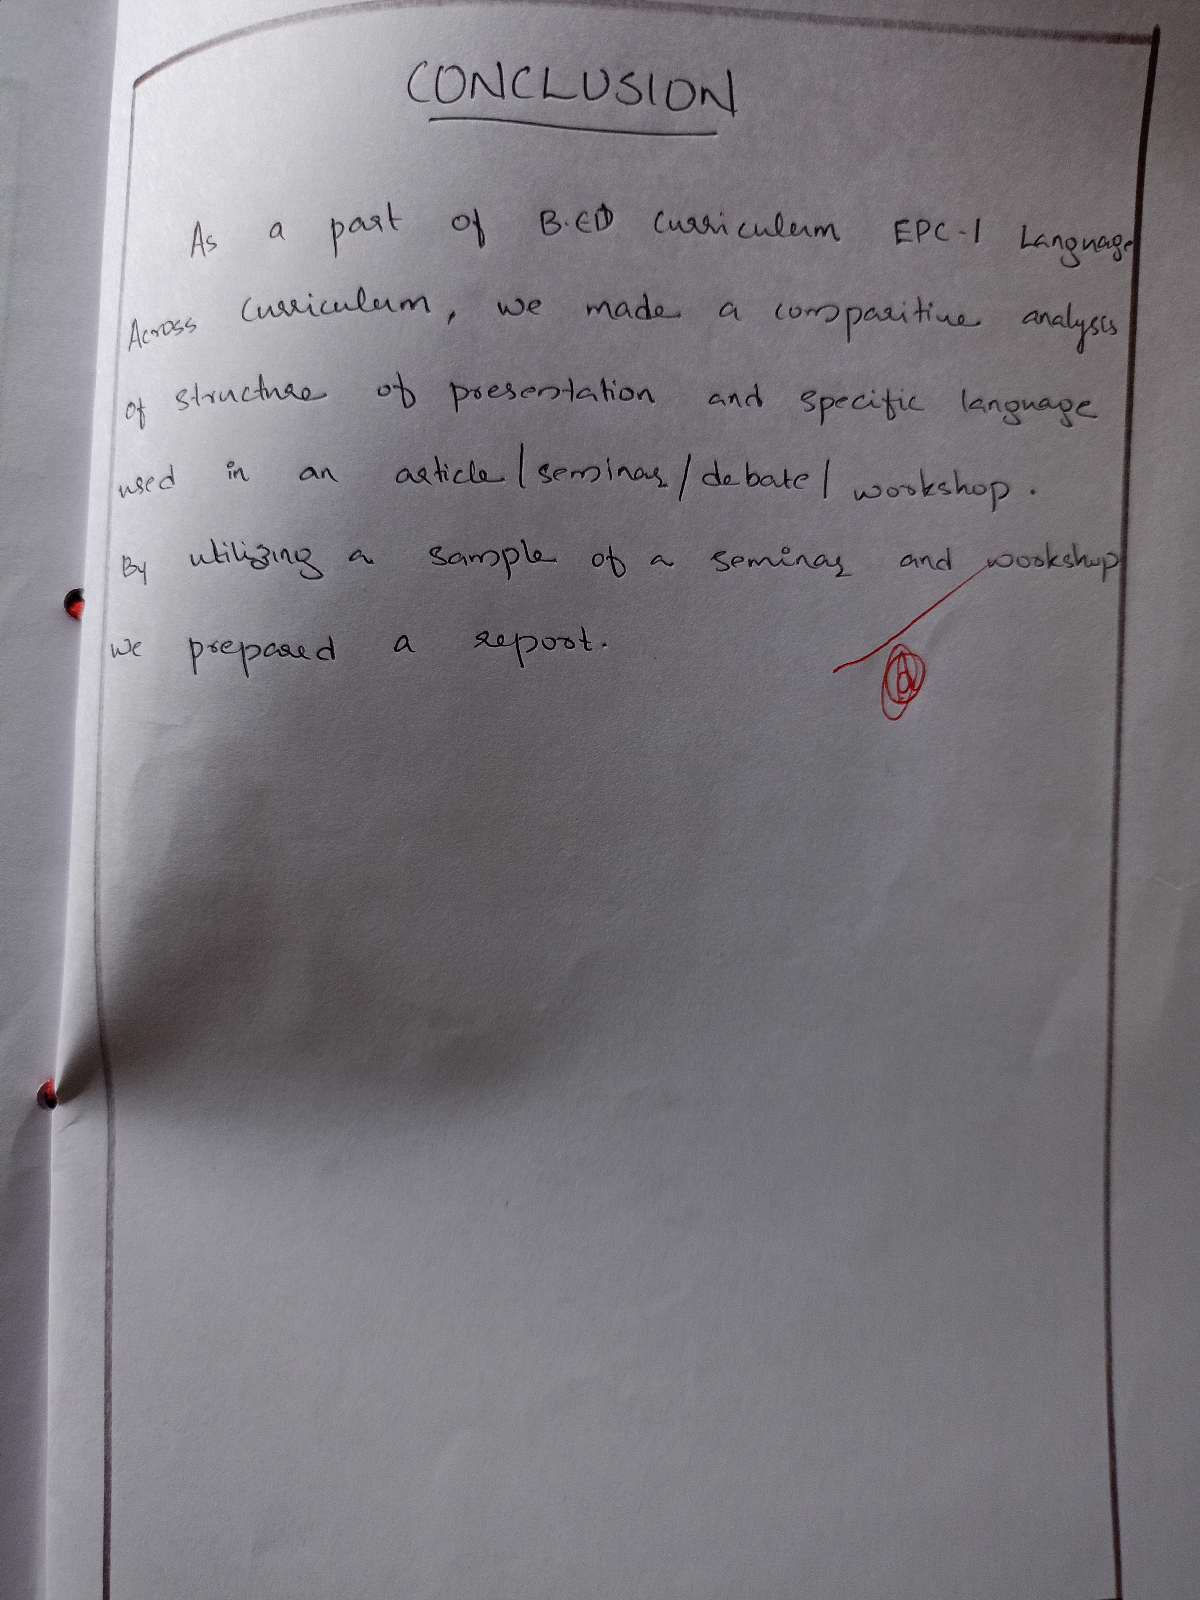 CONCLUSION
As a part of B.ED Curriculum EPC-1 Language
Across Curriculum, we made a comparitive analysis
of structure of presentation and specific language
used in an article/seminar/debate/workshop.
By utilizing a sample of a seminar and workshop
we prepared a report.